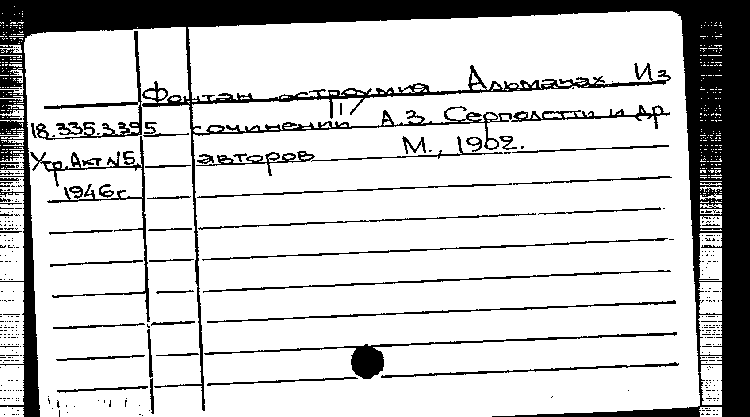 Фонтан остроумия Альманах Из
18.335.3.395 сочинений А.З. Серполетти и др
Утр. Акт №5, авторов М., 1902.
1946г.